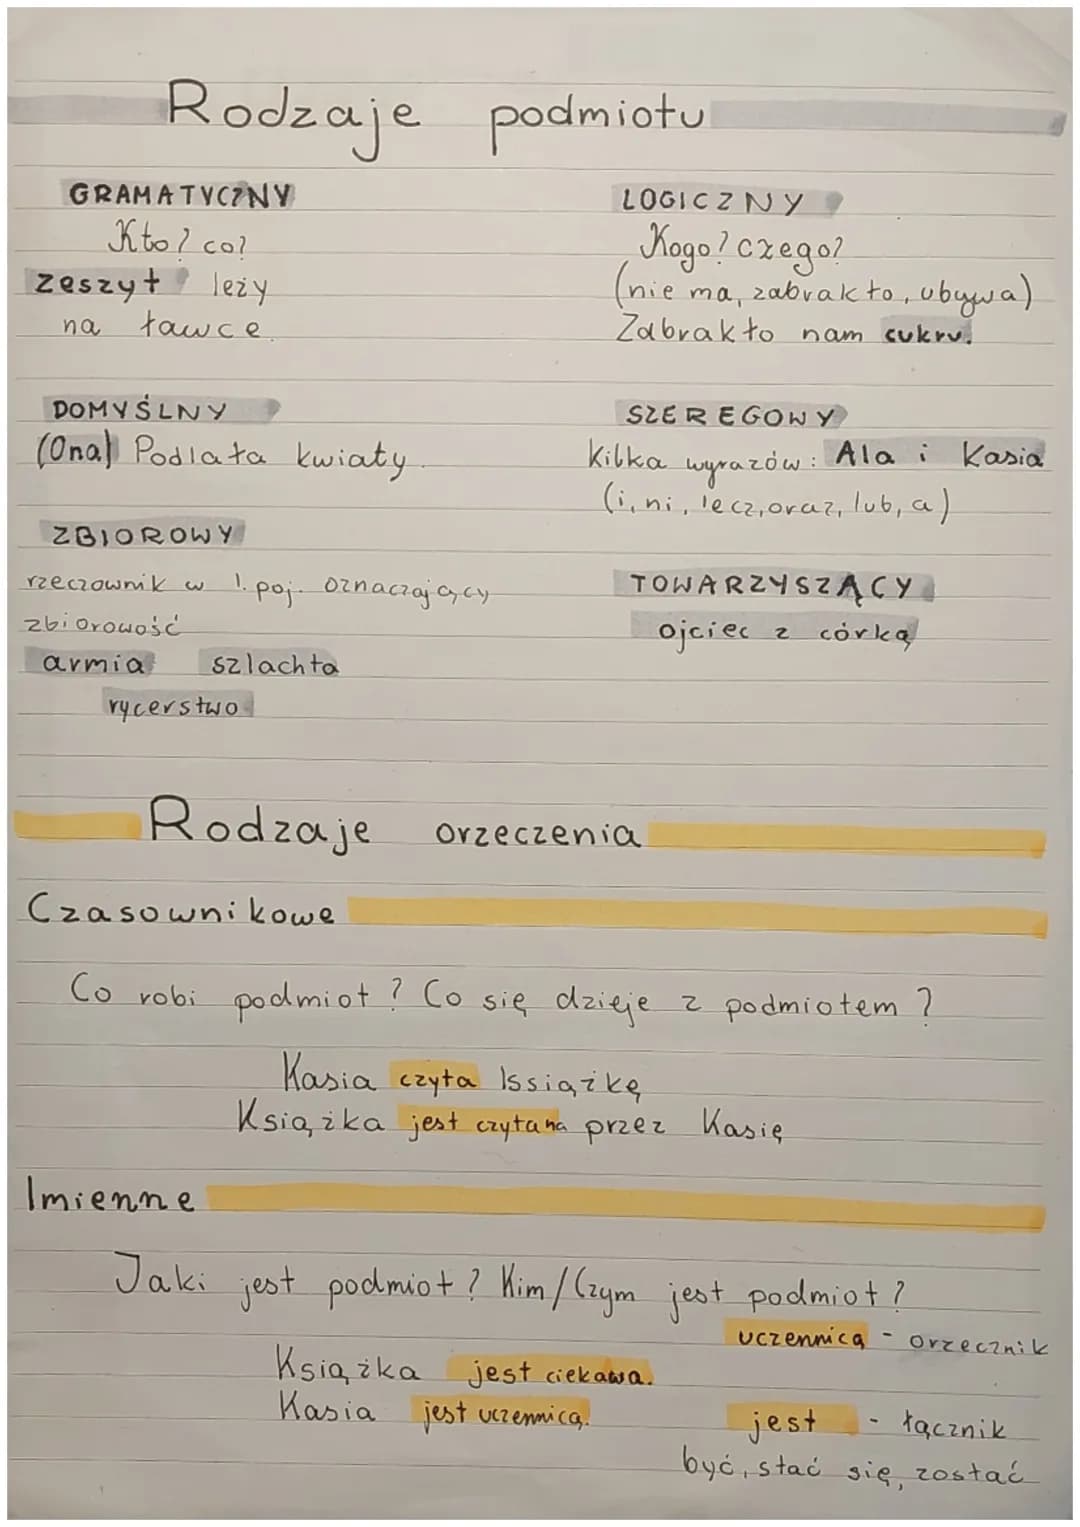 Rodzaje podmiotu
GRAMATYCZNY
Kto? co?
zeszyt leży
na ławce.
LOGICZNY
Kogo? czego?
(nie ma, zabrakło, ubywa)
Zabrakło nam cukru.
DOMYŚLNY
(Ona) Podlała kwiaty.
SZEREGOWY
Kilka wyrazów: Ala i Kasia
(i, ni, lecz, oraz, lub, a)
ZBIOROWY
rzeczownik w l. poj. oznaczający
zbiorowość
armia szlachta
rycerstwo
TOWARZYSZĄCY
ojciec z córką
Rodzaje orzeczenia
Czasownikowe
Co robi podmiot? Co się dzieje z podmiotem?
Kasia czyta książkę
Książka jest czytana przez Kasię
Imienne
Jaki jest podmiot? Kim/Czym jest podmiot?
uczennicą - orzecznik
Książka jest ciekawa.
Kasia jest uczennicą.
jest - łącznik
być, stać się, zostać